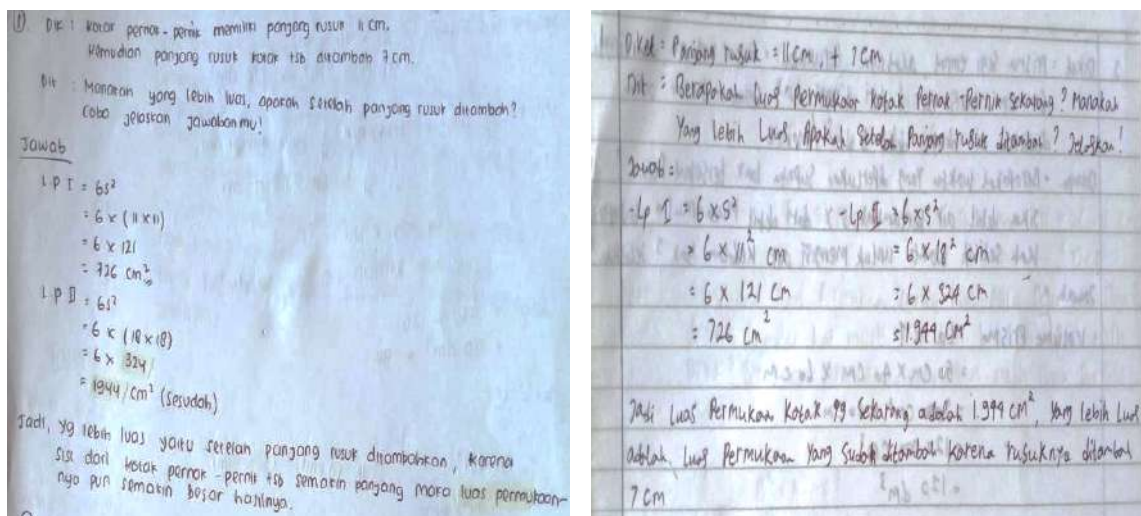 ①. Dik : Kotak pernak-pernik memiliki panjang rusuk 11 cm.
Kemudian panjang rusuk kotak tsb ditambah 7 cm.
Dit : Manakah yang lebih luas, apakah setelah panjang rusuk ditambah?
Coba jelaskan jawabanmu!
Jawab
LP I = 6s²
= 6 x (11 x 11)
= 6 x 121
= 726 cm²
LP II = 6s²
= 6 x (18 x 18)
= 6 x 324
= 1944 cm² (sesudah)
Jadi, yg lebih luas yaitu setelah panjang rusuk ditambahkan, karena
sisi dari kotak pernak-pernik tsb semakin panjang maka luas permukaan-
nya pun semakin besar hasilnya.
1. Diket = Panjang rusuk = 11 cm, + 7 cm
Dit : Berapakah luas Permukaan kotak Pernak-Pernik sekarang? Manakah
Yang lebih Luas Apakah setelah Panjang rusuk ditambah? Jelaskan!
Jawab =
-Lp I = 6 x S²
= 6 x 11² cm
= 6 x 121 cm
= 726 cm²
-Lp II = 6 x s²
= 6 x 18² cm
= 6 x 324 cm
= 1.944 cm²
Jadi Luas Permukaan Kotak yg Sekarang adalah 1.944 cm², Yang lebih Luas
adalah Luas Permukaan Yang Sudah ditambah karena rusuknya ditambah
7 cm